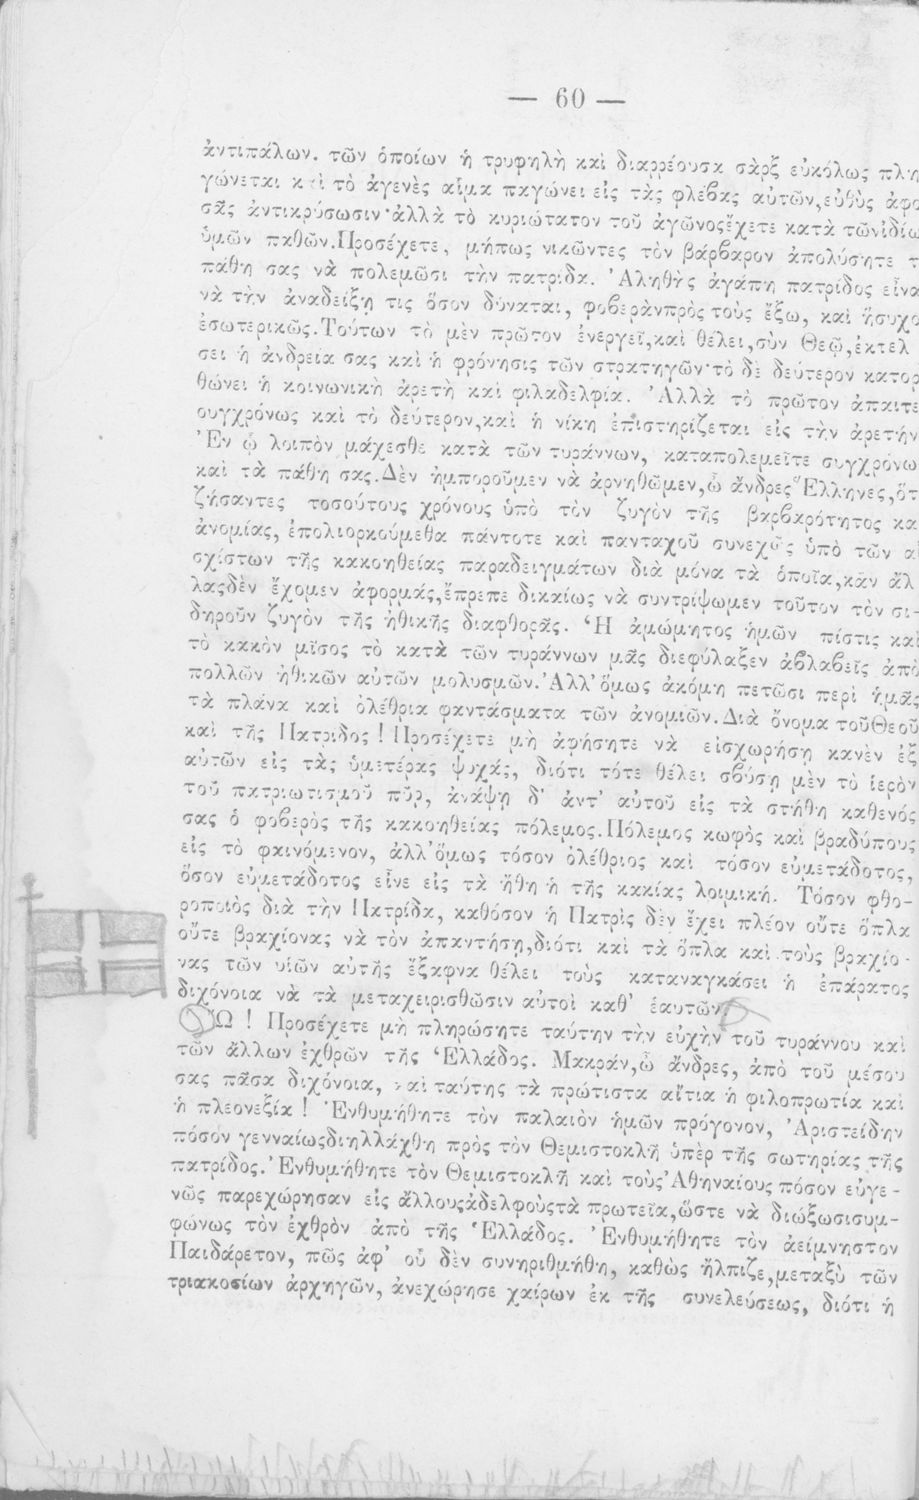 — 60 —
ἀντιπάλων. τῶν ὁποίων ἡ τρυφηλὴ καὶ διαρρέουσα σὰρξ εὐκόλως πλη
γώνεται καὶ τὸ ἀγενὲς αἷμα παγώνει εἰς τὰς φλέβας αὐτῶν,εὐθὺς ἀφο
σᾶς ἀντικρύσωσιν·ἀλλὰ τὸ κυριώτατον τοῦ ἀγῶνοςἔχετε κατὰ τῶνἰδίω
ὑμῶν παθῶν.Προσέχετε, μήπως νικῶντες τὸν βάρβαρον ἀπολύσητε τ
πάθη σας νὰ πολεμῶσι τὴν πατρίδα. Ἀληθὴς ἀγάπη πατρίδος εἶνα
νὰ τὴν ἀναδείξῃ τις ὅσον δύναται, φοβερὰνπρὸς τοὺς ἔξω, καὶ ἥσυχο
ἐσωτερικῶς.Τούτων τὸ μὲν πρῶτον ἐνεργεῖ,καὶ θέλει,σὺν Θεῷ,ἐκτελ
σει ἡ ἀνδρεία σας καὶ ἡ φρόνησις τῶν στρατηγῶν·τὸ δὲ δεύτερον κατορ
θώνει ἡ κοινωνικὴ ἀρετὴ καὶ φιλαδελφία. Ἀλλὰ τὸ πρῶτον ἀπαιτε
συγχρόνως καὶ τὸ δεύτερον,καὶ ἡ νίκη ἐπιστηρίζεται εἰς τὴν ἀρετήν
Ἐν ᾧ λοιπὸν μάχεσθε κατὰ τῶν τυράννων, καταπολεμεῖτε συγχρόνω
καὶ τὰ πάθη σας.Δὲν ἠμποροῦμεν νὰ ἀρνηθῶμεν,ὦ ἄνδρες Ἕλληνες,ὅτ
ζήσαντες τοσούτους χρόνους ὑπὸ τὸν ζυγὸν τῆς βαρβαρότητος κα
ἀνομίας, ἐπολιορκούμεθα πάντοτε καὶ πανταχοῦ συνεχῶς ὑπὸ τῶν αἰ
σχίστων τῆς κακοηθείας παραδειγμάτων διὰ μόνα τὰ ὁποῖα,κἂν ἄλ
λαςδὲν ἔχομεν ἀφορμάς,ἔπρεπε δικαίως νὰ συντρίψωμεν τοῦτον τὸν σι-
δηροῦν ζυγὸν τῆς ἠθικῆς διαφθορᾶς. Ἡ ἀμώμητος ἡμῶν πίστις καὶ
τὸ κακὸν μῖσος τὸ κατὰ τῶν τυράννων μᾶς διεφύλαξεν ἀβλαβεῖς ἀπὸ
πολλῶν ἠθικῶν αὐτῶν μολυσμῶν.Ἀλλ' ὅμως ἀκόμη πετῶσι περὶ ἡμᾶς
τὰ πλάνα καὶ ὀλέθρια φαντάσματα τῶν ἀνομιῶν.Διὰ ὄνομα τοῦΘεοῦ
καὶ τῆς Πατρίδος ! Προσέχετε μὴ ἀφήσητε νὰ εἰσχωρήσῃ κανὲν ἐξ
αὐτῶν εἰς τὰς ὑμετέρας ψυχάς, διότι τότε θέλει σβύσῃ μὲν τὸ ἱερὸν
τοῦ πατριωτισμοῦ πῦρ, ἀνάψῃ δ' ἀντ' αὐτοῦ εἰς τὰ στήθη καθενός
σας ὁ φοβερὸς τῆς κακοηθείας πόλεμος.Πόλεμος κωφὸς καὶ βραδύπους
εἰς τὸ φαινόμενον, ἀλλ' ὅμως τόσον ὀλέθριος καὶ τόσον εὐμετάδοτος,
ὅσον εὐμετάδοτος εἶνε εἰς τὰ ἤθη ἡ τῆς κακίας λοιμική. Τόσον φθο-
ροποιὸς διὰ τὴν Πατρίδα, καθόσον ἡ Πατρὶς δὲν ἔχει πλέον οὔτε ὅπλα
οὔτε βραχίονας νὰ τὸν ἀπαντήσῃ,διότι καὶ τὰ ὅπλα καὶ τοὺς βραχίο-
νας τῶν υἱῶν αὐτῆς ἔξαφνα θέλει τοὺς καταναγκάσει ἡ ἐπάρατος
διχόνοια νὰ τὰ μεταχειρισθῶσιν αὐτοὶ καθ' ἑαυτῶν.
Ὤ ! Προσέχετε μὴ πληρώσητε ταύτην τὴν εὐχὴν τοῦ τυράννου καὶ
τῶν ἄλλων ἐχθρῶν τῆς Ἑλλάδος. Μακράν,ὦ ἄνδρες, ἀπὸ τοῦ μέσου
σας πᾶσα διχόνοια, καὶ ταύτης τὰ πρώτιστα αἴτια ἡ φιλοπρωτία καὶ
ἡ πλεονεξία ! Ἐνθυμήθητε τὸν παλαιὸν ἡμῶν πρόγονον, Ἀριστείδην
πόσον γενναίωςδιηλλάχθη πρὸς τὸν Θεμιστοκλῆ ὑπὲρ τῆς σωτηρίας τῆς
πατρίδος. Ἐνθυμήθητε τὸν Θεμιστοκλῆ καὶ τοὺς Ἀθηναίους πόσον εὐγε-
νῶς παρεχώρησαν εἰς ἄλλουςἀδελφοὺςτὰ πρωτεῖα,ὥστε νὰ διώξωσισυμ-
φώνως τὸν ἐχθρὸν ἀπὸ τῆς Ἑλλάδος. Ἐνθυμήθητε τὸν ἀείμνηστον
Παιδάρετον, πῶς ἀφ' οὗ δὲν συνηριθμήθη, καθὼς ἤλπιζε,μεταξὺ τῶν
τριακοσίων ἀρχηγῶν, ἀνεχώρησε χαίρων ἐκ τῆς συνελεύσεως, διότι ἡ